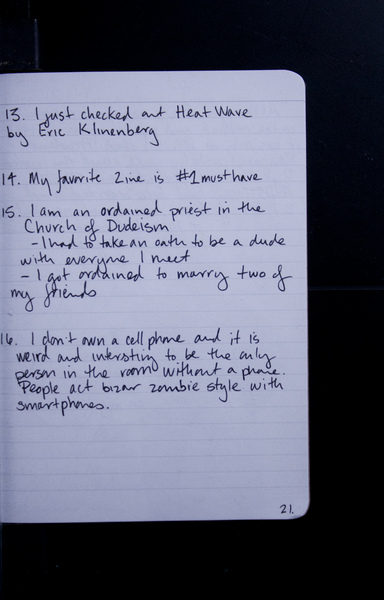 13. I just checked out Heat Wave
by Eric Klinenberg
14. My favorite Zine is #1musthave
15. I am an ordained priest in the
Church of Dudeism
- I had to take an oath to be a dude
with everyone I meet
- I got ordained to marry two of
my friends
16. I don't own a cell phone and it is
weird and intersting to be the only
person in the room without a phone.
People act bizar zombie style with
smartphones.
21.